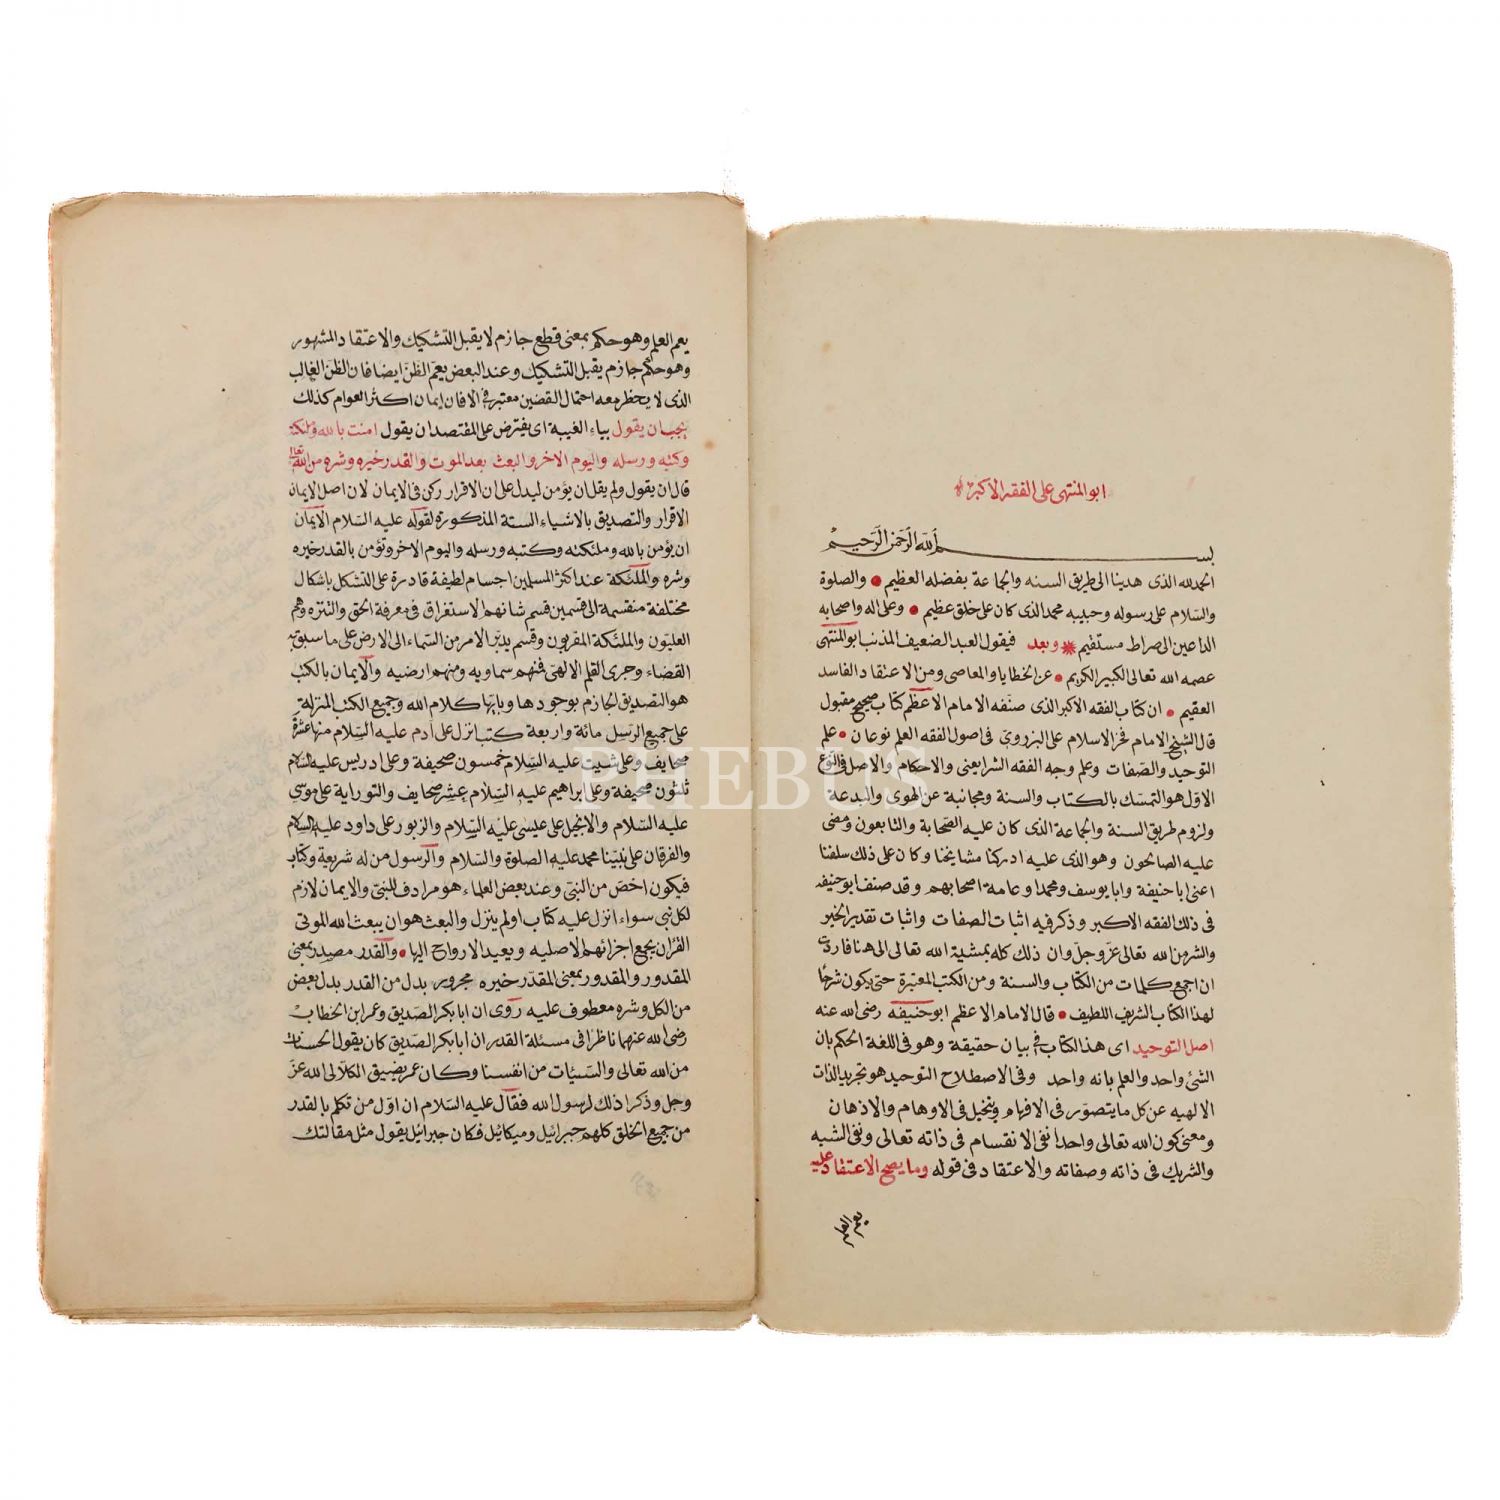 ابو المنتهى على الفقه الاكبر
بسم الله الرحمن الرحيم
الحمد لله الذى هدينا الى طريق السنه والجماعة بفضله العظيم • والصلوة
والسلام على رسوله وحبيبه محمد الذى كان على خلق عظيم • وعلى اله واصحابه
الداعين الى صراط مستقيم * وبعد فيقول العبد الضعيف المذنب ابو المنتهى
عصمه الله تعالى الكبير الكريم • عن الخطايا والمعاصى ومن الاعتقاد الفاسد
العقيم • ان كتاب الفقه الاكبر الذى صنفه الامام الاعظم كتاب صحيح مقبول
قال الشيخ الامام فخر الاسلام على البزدوى فى اصول الفقه العلم نوعان • علم
التوحيد والصفات وعلم وجه الفقه الشرايعنى والاحكام والاصل فى النوع
الاول هو التمسك بالكتاب والسنة ومجانبة عن الهوى والبدعة
ولزوم طريق السنة والجماعة الذى كان عليه الصحابة والتابعون ومضى
عليه الصالحون وهو الذى عليه ادركنا مشايخنا وكان على ذلك سلفنا
اعنى ابا حنيفة وابا يوسف ومحمدا وعامة اصحابهم وقد صنف ابو حنيفه
فى ذلك الفقه الاكبر وذكر فيه اثبات الصفات واثبات تقدير الخير
والشر من الله تعالى عز وجل وان ذلك كله بمشية الله تعالى الى هنا فاردت
ان اجمع كلمات من الكتاب والسنة ومن الكتب المعتبرة حتى يكون شرحا
لهذا الكتاب الشريف اللطيف • قال الامام الاعظم ابو حنيفه رضى الله عنه
اصل التوحيد اى هذا الكتاب فى بيان حقيقة وهو فى اللغة الحكم بان
الشئ واحد والعلم بانه واحد وفى الاصطلاح التوحيد هو تجريد الذات
الالهيه عن كل ما يتصور فى الافهام ويتخيل فى الاوهام والاذهان
ومعنى كون الله تعالى واحدا نفى الانقسام فى ذاته تعالى ونفى الشبه
والشريك فى ذاته وصفاته والاعتقاد فى قوله وما يصح الاعتقاد عليه
يعم العلم
يعم العلم وهو حكم بمعنى قطع جازم لا يقبل التشكيك والاعتقاد المشهور
وهو حكم جازم يقبل التشكيك وعند البعض يعم الظن ايضا فان الظن الغالب
الذى لا يحظر معه احتمال النقضين معتبر فى الافان ايمان اكثر العوام كذلك
يجب ان يقول بياء الغيبة اى يفترض على المقتصد ان يقول امنت بالله وملئكته
وكتبه ورسله واليوم الاخر والبعث بعد الموت والقدر خيره وشره من الله تعالى
قال ان يقول ولم يقل ان يؤمن ليدل على ان الاقرار ركن فى الايمان لان اصل الايمان
الاقرار والتصديق بالاشياء الستة المذكورة لقوله عليه السلام الايمان
ان يؤمن بالله وملئكته وكتبه ورسله واليوم الاخر وتؤمن بالقدر خيره
وشره والملئكة عند اكثر المسلمين اجسام لطيفة قادرة على التشكل باشكال
مختلفة منقسمة الى قسمين قسم شانهم الاستغراق فى معرفة الحق والتنزه وهم
العليون والملئكة المقربون وقسم يدبر الامر من السماء الى الارض على ما سبق به
القضاء وجرى القلم الالهى فمنهم سماويه ومنهم ارضيه والايمان بالكتب
هو التصديق الجازم بوجودها وبانها كلام الله وجميع الكتب المنزلة
على جميع الرسل مائة واربعة كتب انزل على ادم عليه السلام منها عشرة
صحايف وعلى شيت عليه السلام خمسون صحيفة وعلى ادريس عليه السلام
ثلثون صحيفة وعلى ابراهيم عليه السلام عشر صحايف والتوراية على موسى
عليه السلام والانجيل على عيسى عليه السلام والزبور على داود عليه السلام
والفرقان على نبينا محمد عليه الصلوة والسلام والرسول من له شريعة وكتاب
فيكون اخص من النبى وعند بعض العلماء هو مرادف للنبى والايمان لازم
لكل نبى سواء انزل عليه كتاب اولم ينزل والبعث هو ان يبعث الله الموتى
القرآن يجمع اجزائهم الاصليه ويعيد الارواح اليها • والقدر مصدر بمعنى
المقدور والمقدور بمعنى المقدر خيره مجرور بدل من القدر بدل بعض
من الكل وشره معطوف عليه روى ان ابا بكر الصديق وعمر ابن الخطاب
رضى الله عنهما ناظرا فى مسئلة القدر ان ابا بكر الصديق كان يقول الحسنات
من الله تعالى والسيئات من انفسنا وكان عمر يضيق الكلا الى الله عز
وجل وذكرا ذلك لرسول الله فقال عليه السلام ان اول من تكلم بالقدر
من جميع الخلق كلهم جبرائيل وميكائيل فكان جبرائيل يقول مثل مقالتك
PHEBUS